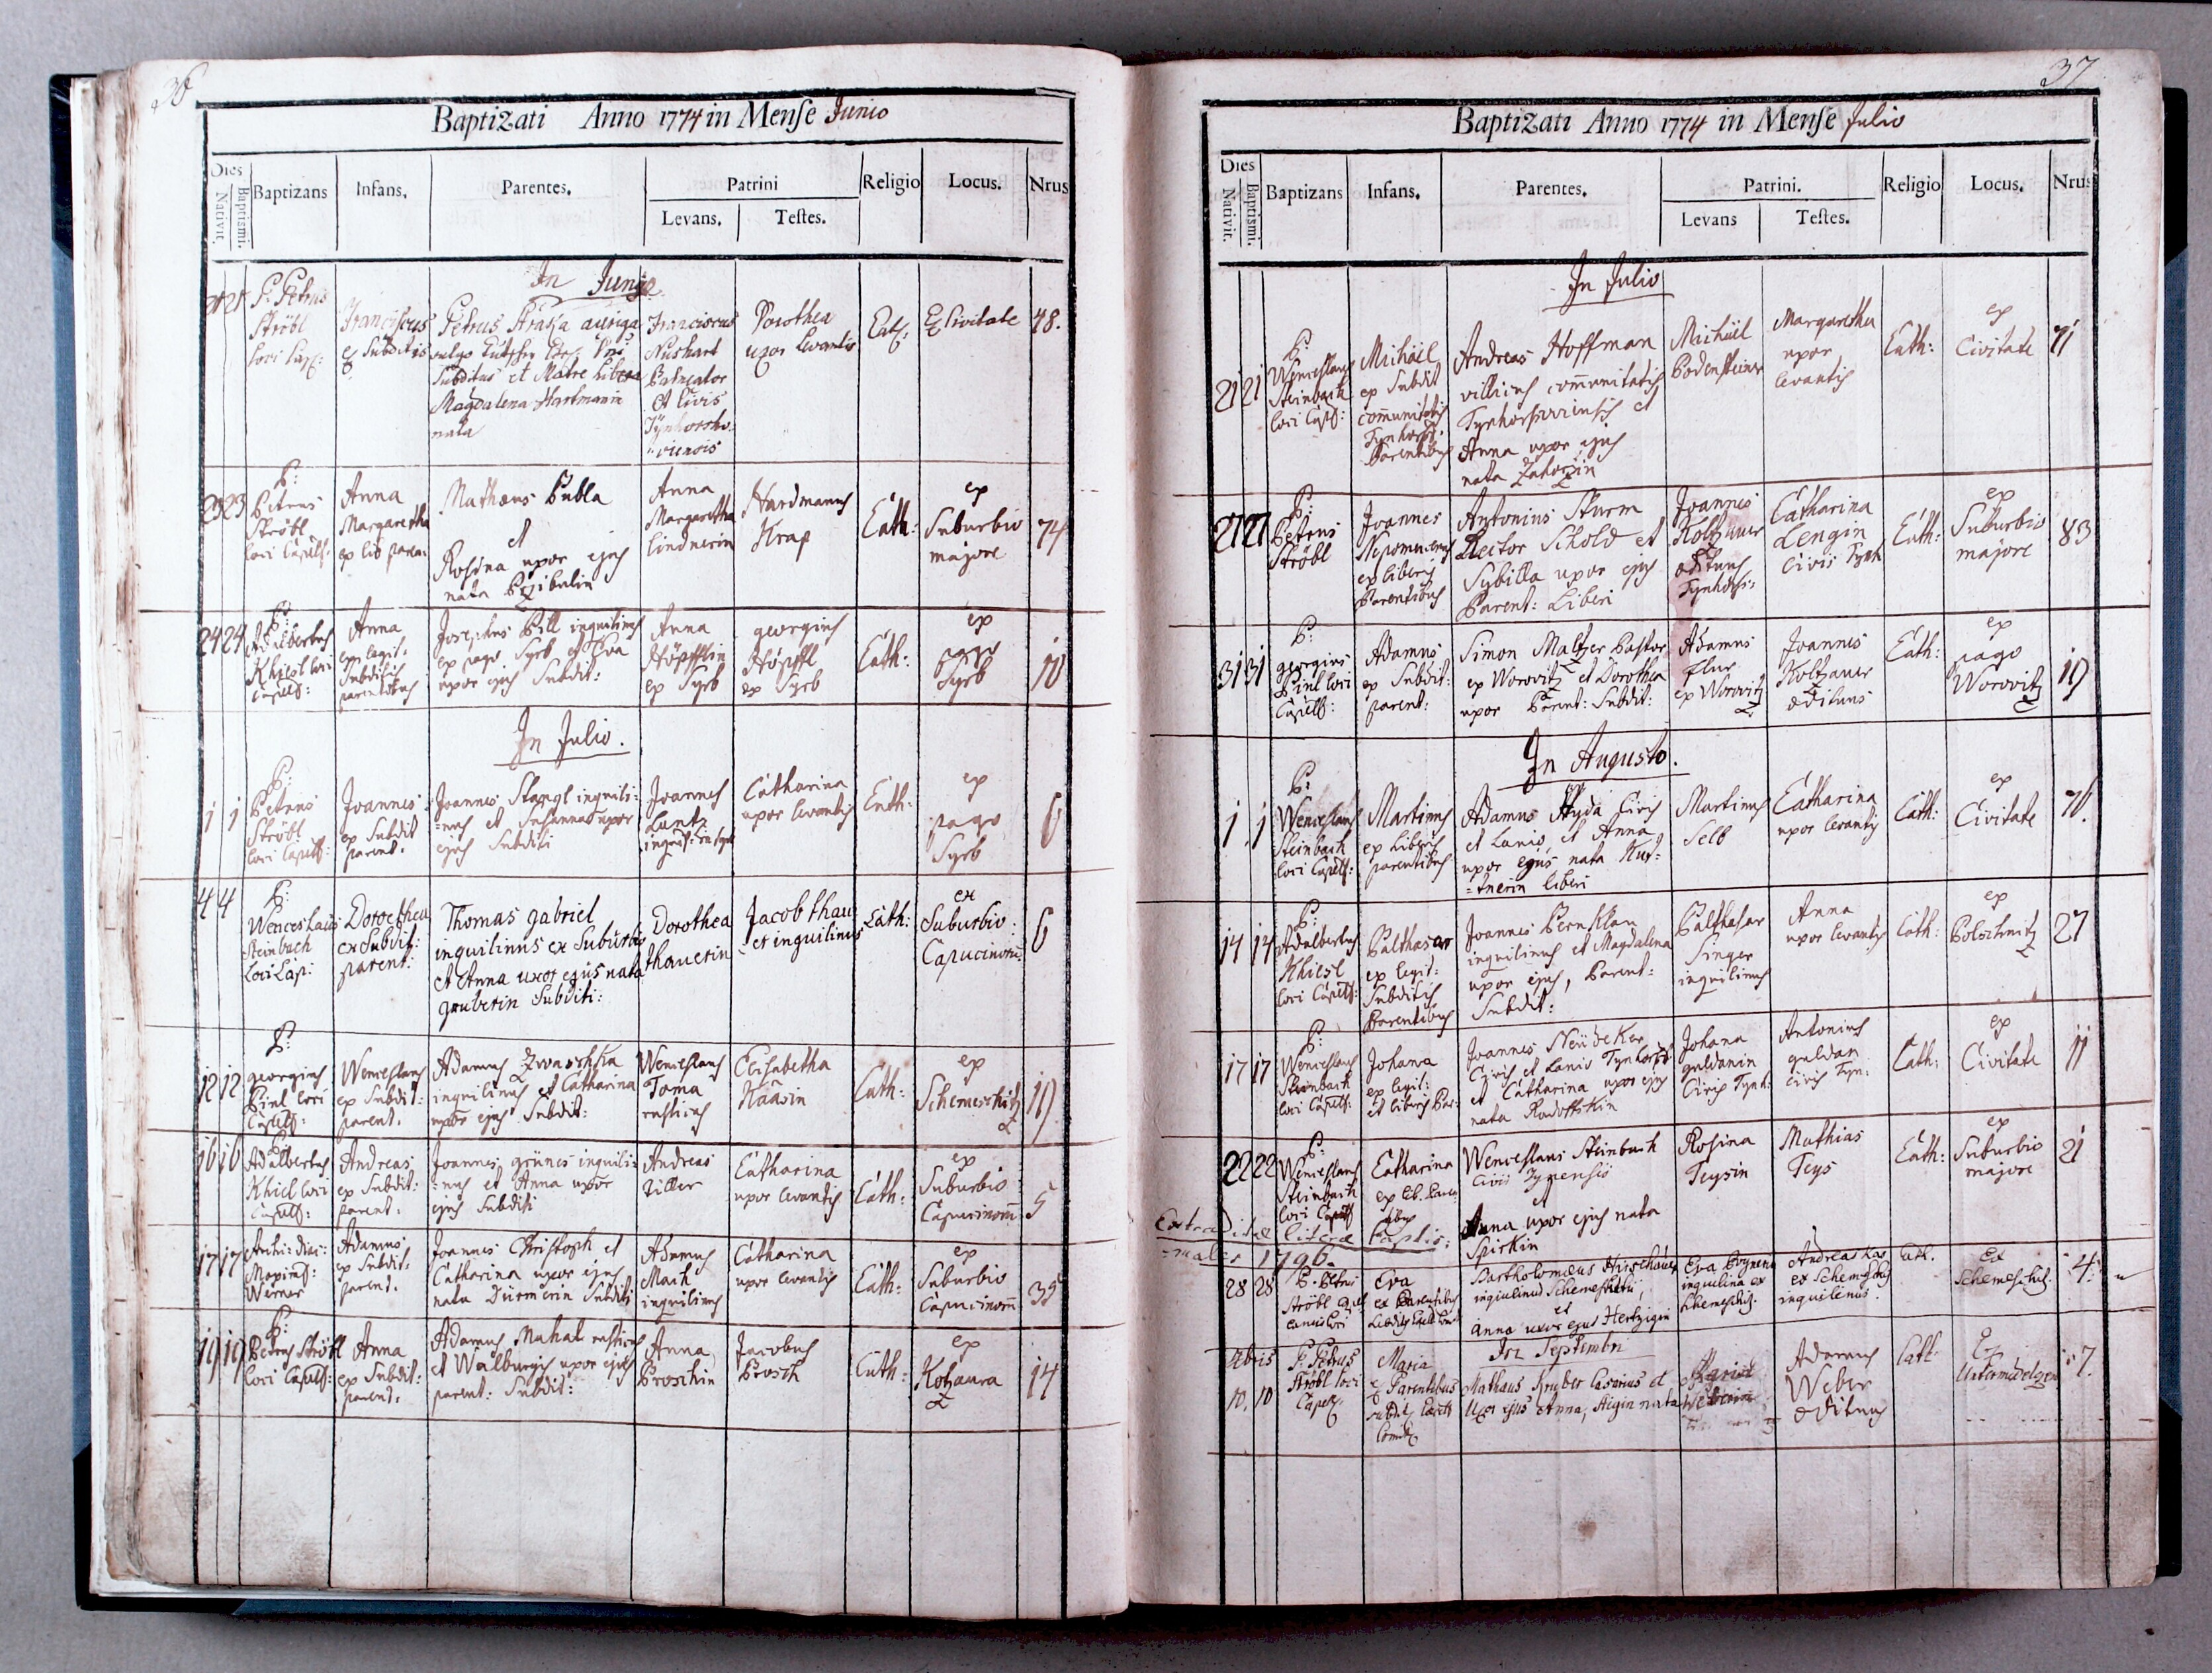 36
Baptizati Anno 1774 in Mense Junio
Dies
Nativit.
Baptismi.
Baptizans
Infans.
Parentes.
Patrini
Levans.
Testes.
Religio
Locus.
Nrus
In Junio
P. Petrus
Ströbl
loci Cap:
Franciscus
ex Subditis
Petrus Straka auriga
vulgo
Subditus et Matre libera
Magdalena Hartmanin
nata
Franciscus
Nushart
Balneator
et Civis
Tynhorsho-
viensis
Dorothea
uxor levantis
Cat:
Ex Civitate
48.
23 23
P:
Petrus
Ströbl
loci Capell:
Anna
Margaretha
ex lib paren:
Mathæus Bubla
et
Rosina uxor ejus
nata Przibulin
Anna
Margaretha
Lindnerin
Hardmanus
Krap
Cath:
ex
Suburbio
majore
74
24 24
P:
Adalbertus
Khiesl loci
Capell:
Anna
ex legit:
Subditis
parentibus
Josephus Bill inquilinus
ex pago Syrb et Eva
uxor ejus Subdit:
Anna
Höpfflin
ex Syrb
georgius
Höpffl
ex Syrb
Cath:
ex
pago
Syrb
10
In Julio.
1 1
P:
Petrus
Ströbl
loci Capell:
Joannes
ex Subdit
parent.
Joannes Stangl inquili:
=nus et Susanna uxor
ejus Subditi
Joannes
Lantz
inquil: in Syrb
Catharina
uxor levantis
Cath:
ex
pago
Syrb
6
4 4
P:
Wenceslaus
Steinbach
Loci Cap:
Dorothea
ex Subdit:
parent:
Thomas gabriel
inquilinus ex Suburbio
et Anna uxor ejus nata
gruberin Subditi:
Dorothea
thauerin
Jacob thau
et inquilinus
Cath:
ex
Suburbio:
Capucinoru:
6
12 12
P:
georgius
Pinl loci
Capell:
Wenceslaus
ex Subdit:
parent.
Adamus Zwonschka
inquilinus et Catharina
uxor ejus Subdit:
Wenceslaus
Toma
rusticus
Elisabetha
Haasin
Cath:
ex
Schemeschitz
19
16 16
P:
Adalbertus
Khiesl loci
Capell:
Andreas
ex Subdit:
parent.
Joannes grünes inquili:
=nus et Anna uxor
ejus Subditi
Andreas
Ziller
Catharina
uxor levantis
Cath:
ex
Suburbio
Capucinorum
5
17 17
Archi: Diac:
Maximil:
Werner
Adamus
ex Subdit:
parent.
Joannes Christoph et
Catharina uxor ejus
nata Dürmerin Subditi
Adamus
Mach
inquilinus
Catharina
uxor levantis
Cath:
ex
Suburbio
Capucinorum
35
19 19
P:
Petrus Ströbl
loci Capell:
Anna
ex Subdit:
parent.
Adamus Muhal rusticus
et Walburgis uxor ejus
parent: Subdit:
Anna
Proschin
Jacobus
Prosch
Cath:
ex
Kotzaura
14
37
Baptizati Anno 1774 in Mense Julio
Dies
Nativit.
Baptismi.
Baptizans
Infans.
Parentes.
Patrini.
Levans
Testes.
Religio
Locus.
Nrus
In Julio
21 21
P:
Wenceslaus
Steinbach
loci Capell:
Michäel
ex Subdit
communitatis
Tynhorsh.
Parentibus
Andreas Hoffman
villicus communitatis
Tynhorshoviensis et
Anna uxor ejus
nata Zahorzin
Michäel
Bodensteiner
Margaretha
uxor
levantis
Cath:
ex
Civitate
71
27 27
P:
Petrus
Ströbl
Joannes
Nepomucenus
ex liberis
Parentibus
Antonius Sturm
Rector Schold et
Sybilla uxor ejus
Parent: Liberi
Joannes
Koltzauer
ædituus
Tynhorsh:
Catharina
Lengin
Civis Tynh
Cath:
ex
Suburbio
majore
83
31 31
P:
georgius
Pinl loci
Capell:
Adamus
ex Subdit:
parent:
Simon Maltzer Pastor
ex Worovitz et Dorothea
uxor Parent: Subdit:
Adamus
Flur
ex Worovitz
Joannes
Koltzauer
ædituus
Cath:
ex
pago
Worovitz
19
In Augusto.
1 1
P:
Wenceslaus
Steinbach
loci Capell:
Martinus
ex Liberis
parentibus
Adamus Hyda Civis
et Lanio, et Anna
uxor ejus nata Kut=
=tnerin liberi
Martinus
Selb
Catharina
uxor levantis
Cath:
ex
Civitate
76.
14 14
P:
Adalbertus
Khiesl
loci Capell:
Balthasar
ex legit:
Subditis
Parentibus
Joannes Bernklau
inquilinus et Magdalena
uxor ejus, Parent:
Subdit:
Balthasar
Singer
inquilinus
Anna
uxor levantis
Cath:
ex
Polschnitz
27
17 17
P:
Wenceslaus
Steinbach
loci Capell:
Johana
ex legit:
et liberis Par:
Joannes Neüdeker
Civis et Lanio Tynhorsh
et Catharina uxor ejus
nata Radoffskin
Johana
guldanin
Civis Tynh:
Antonius
guldan
Civis Tyn:
Cath:
ex
Civitate
11
22 22
P:
Wenceslaus
Steinbach
loci Capell
Catharina
ex lib. Paren
tibus
Wenceslaus Steinbach
Civis Tynensis
et
Anna uxor ejus nata
Spirkin
Rosina
Teysin
Mathias
Teys
Cath:
ex
Suburbio
majore
21
Extraditæ literæ Baptis:
=males 1796.
28 28
P. Petrus
Ströbl
Eva
ex Parentibus
Bartholomæus Hirschauer
inquilinus Schemeschitii,
et
Anna uxor ejus Hertzigin
Eva
inquilina ex
Schemeschitz.
Andreas Kas
ex Schemeschitz
inquilenus.
Cath.
Ex
Schemeschitz.
4.
In Septembri
10. 10
P. Petrus
Ströbl loci
Capel:
Maria
ex Parentibus
Mathæus Gruber Casarius et
Uxor ejus Anna, Aigin nata
Maria
Weberin
Adamus
Weber
ædituus
Cath.
Ex
Untermedelzen
7.